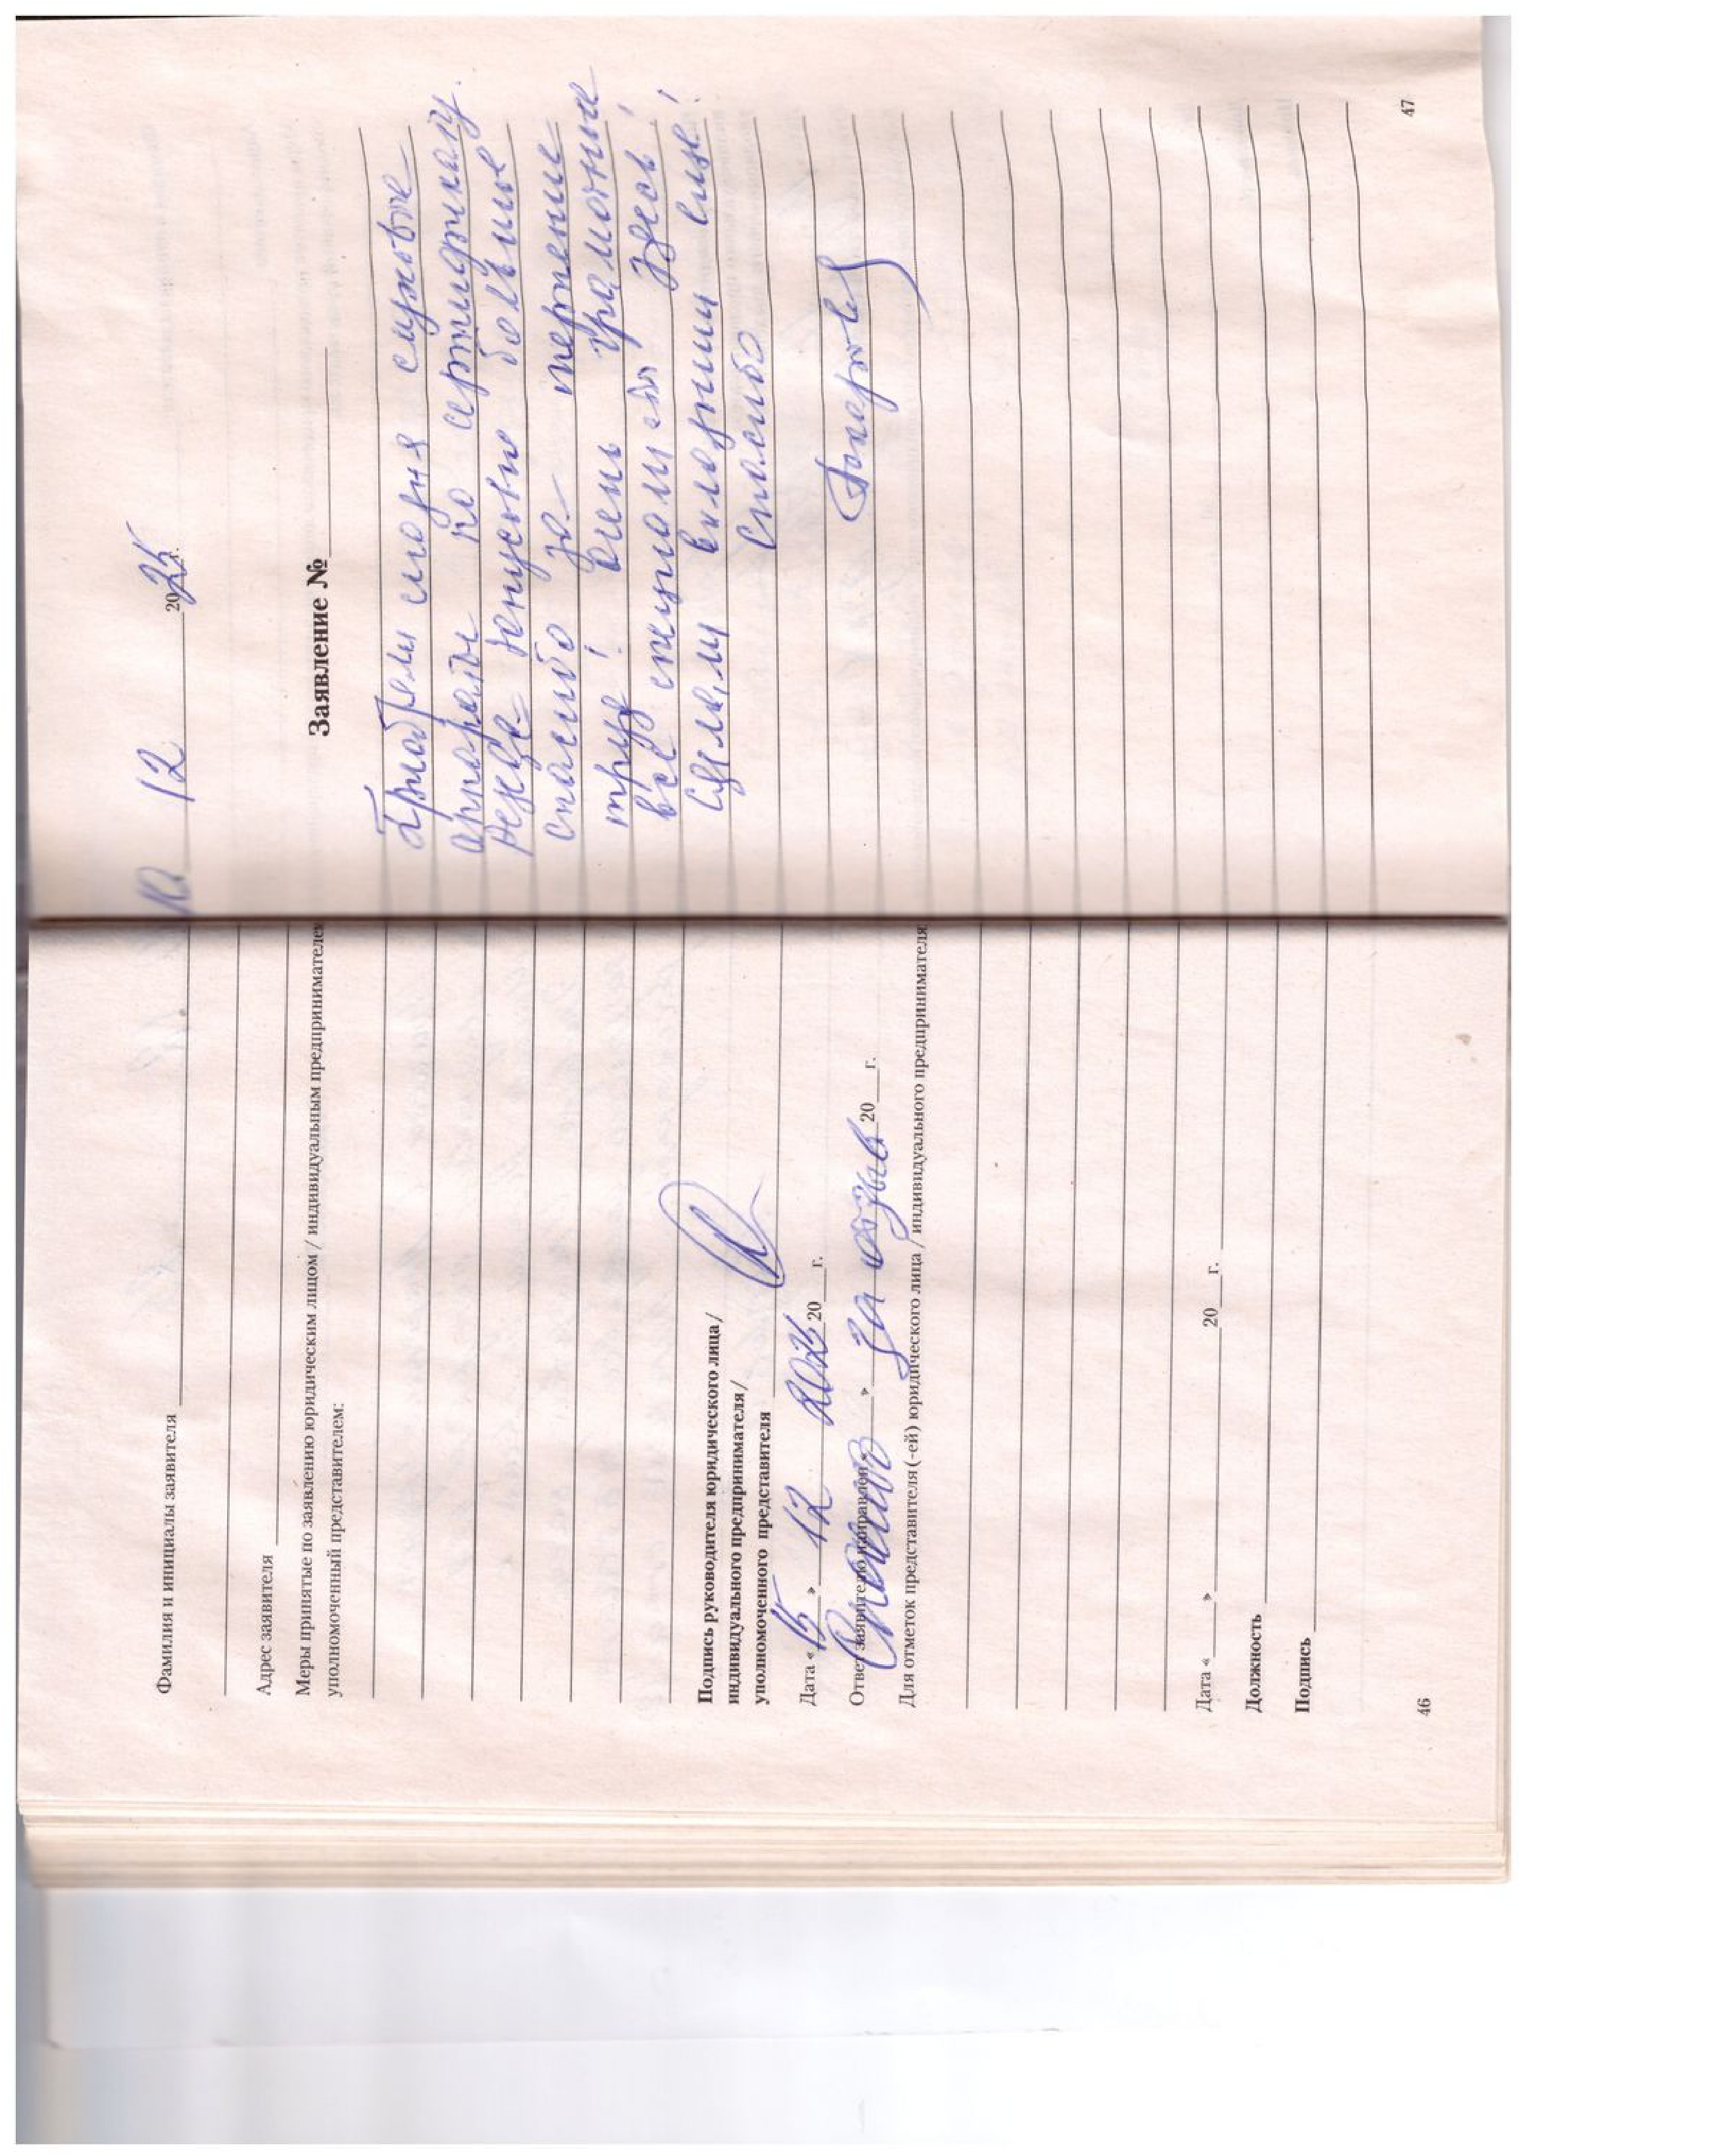 Фамилия и инициалы заявителя
Адрес заявителя
Меры принятые по заявлению юридическим лицом / индивидуальным предпринимателем
уполномоченный представителем:
Подпись руководителя юридического лица /
индивидуального предпринимателя /
уполномоченного представителя
Дата « 15 » 12 2025 20 г.
Ответ заявителю направлен « » 20 г.
Спасибо за отзыв
Для отметок представителя (-ей) юридического лица / индивидуального предпринимателя
Дата « » 20 г.
Должность
Подпись
46
10 12 2025 г.
Заявление №
Приобрели сегодня слуховые
аппараты по сертификату.
спасибо за терпение
труд! очень грамотные
все специалисты здесь!
Сделали вкладыши еще!
Спасибо
47